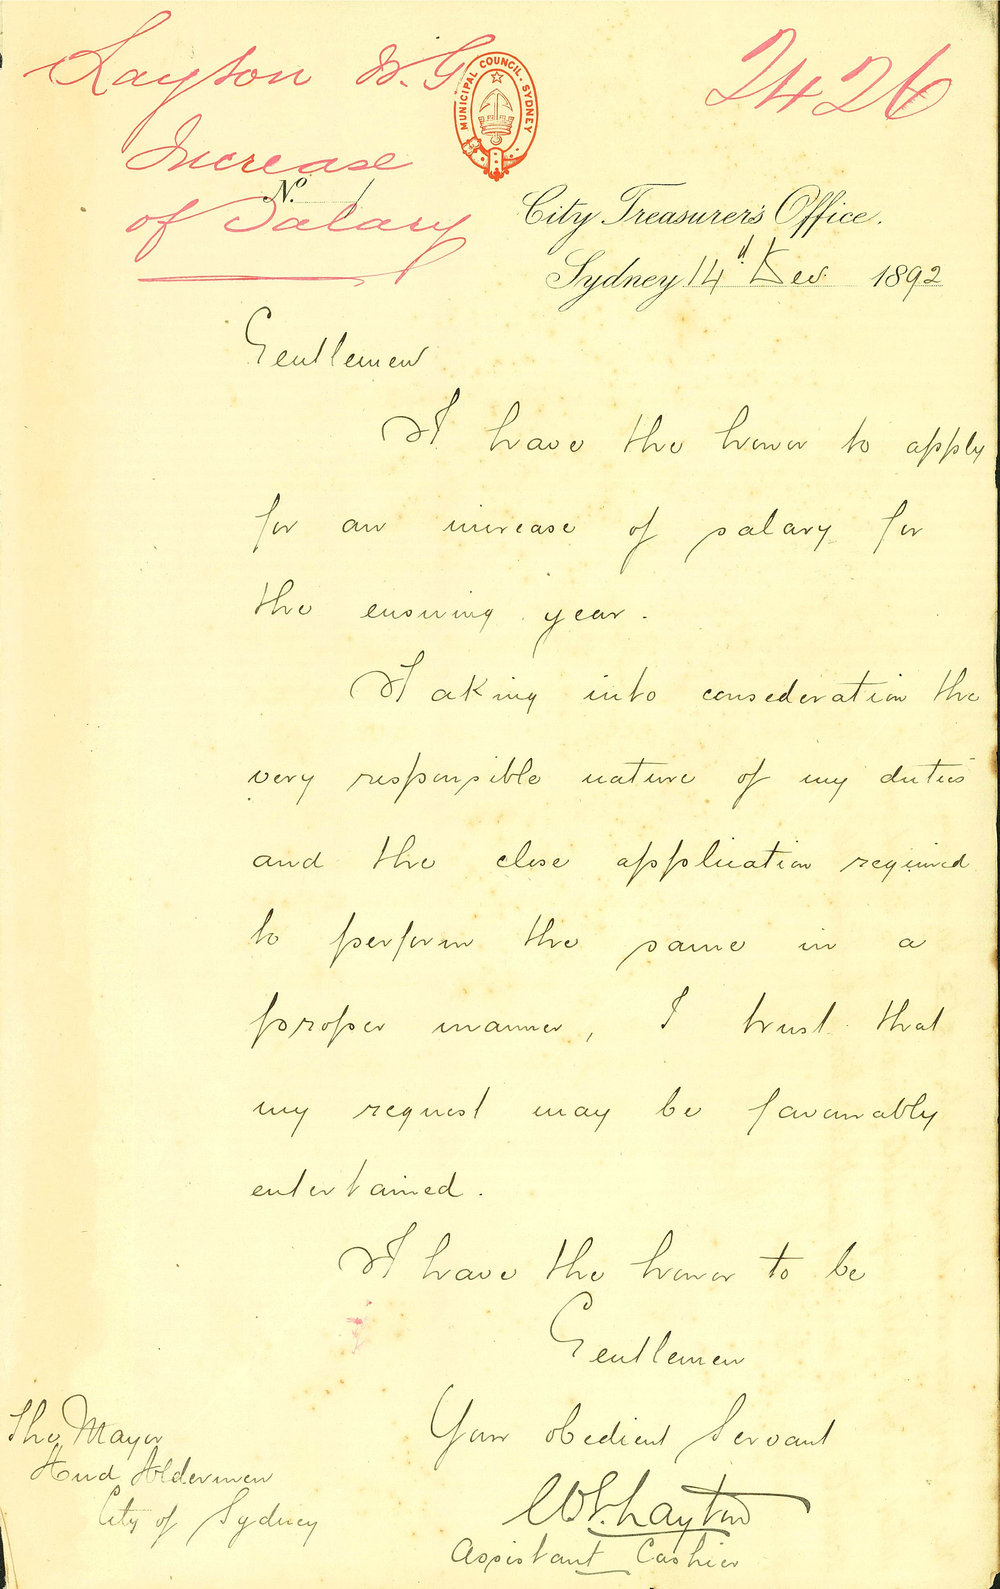 Layton W. G
2426
Increase
of Salary
MUNICIPAL COUNCIL. SYDNEY
No.
City Treasurer's Office.
Sydney 14th Dec 1892
Gentlemen
I have the honor to apply
for an increase of salary for
the ensuing year.
Taking into consederation the
very responsible nature of my duties
and the close application required
to perform the same in a
proper manner, I trust that
my request may be favourably
entertained.
I have the honor to be
Gentlemen
Your obedient Servant
W G. Layton
Assistant Cashier
The Mayor
And Aldermen
City of Sydney